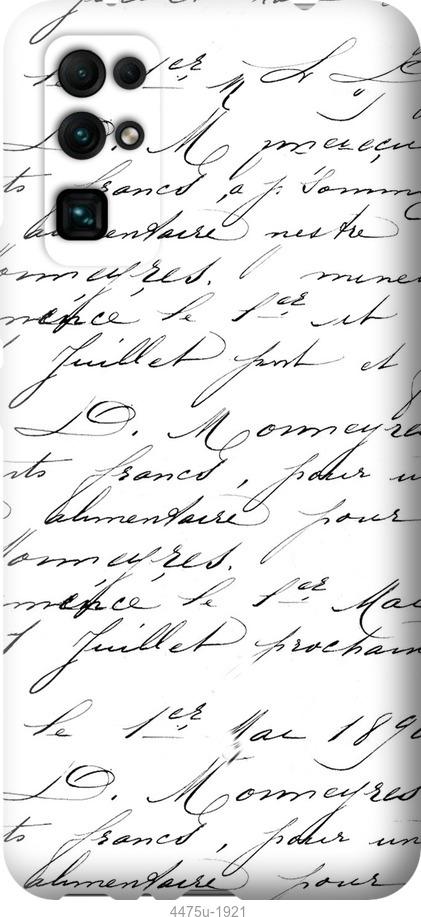 le 1er
D. M
ts francs, a p. Somm
alimentaire nestre
onneyres. mine
mence le 1er et
Juillet port et
D. Monneyre
nts francs, pour u
alimentaire pour
onneyres.
mence le 1er Mai
1 Juillet prochain
le 1er Mai 189
D. Monneyres
ts francs, pour un
alimentaire pour
4475u-1921